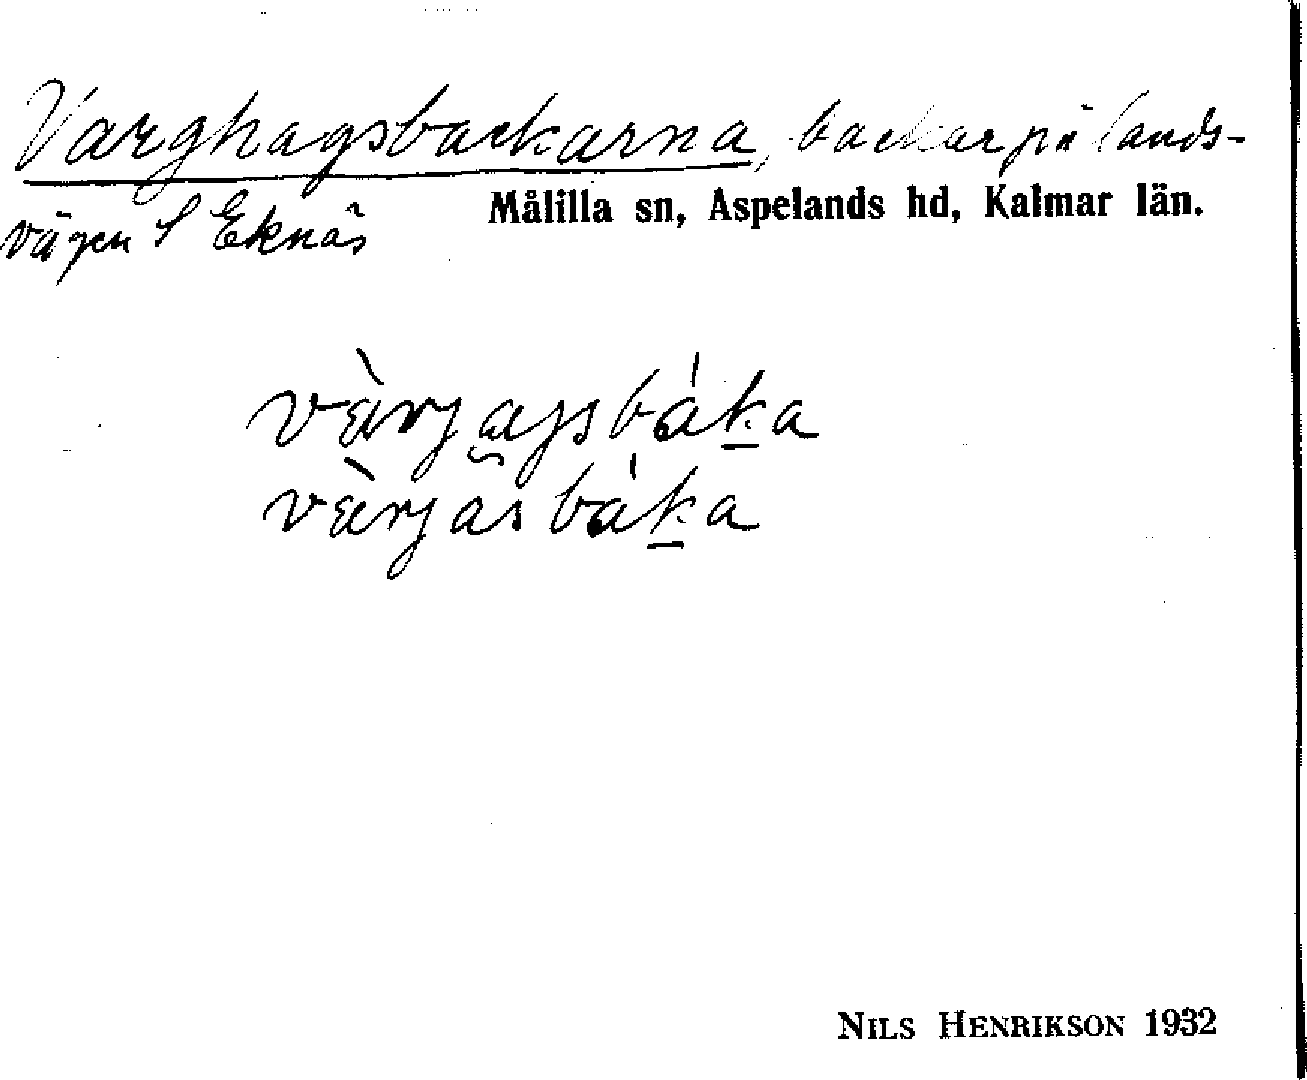 Varghagsbackarna, backar på lands-
vägen S Eknäs
Målilla sn, Aspelands hd, Kalmar län.
NILS HENRIKSON 1932